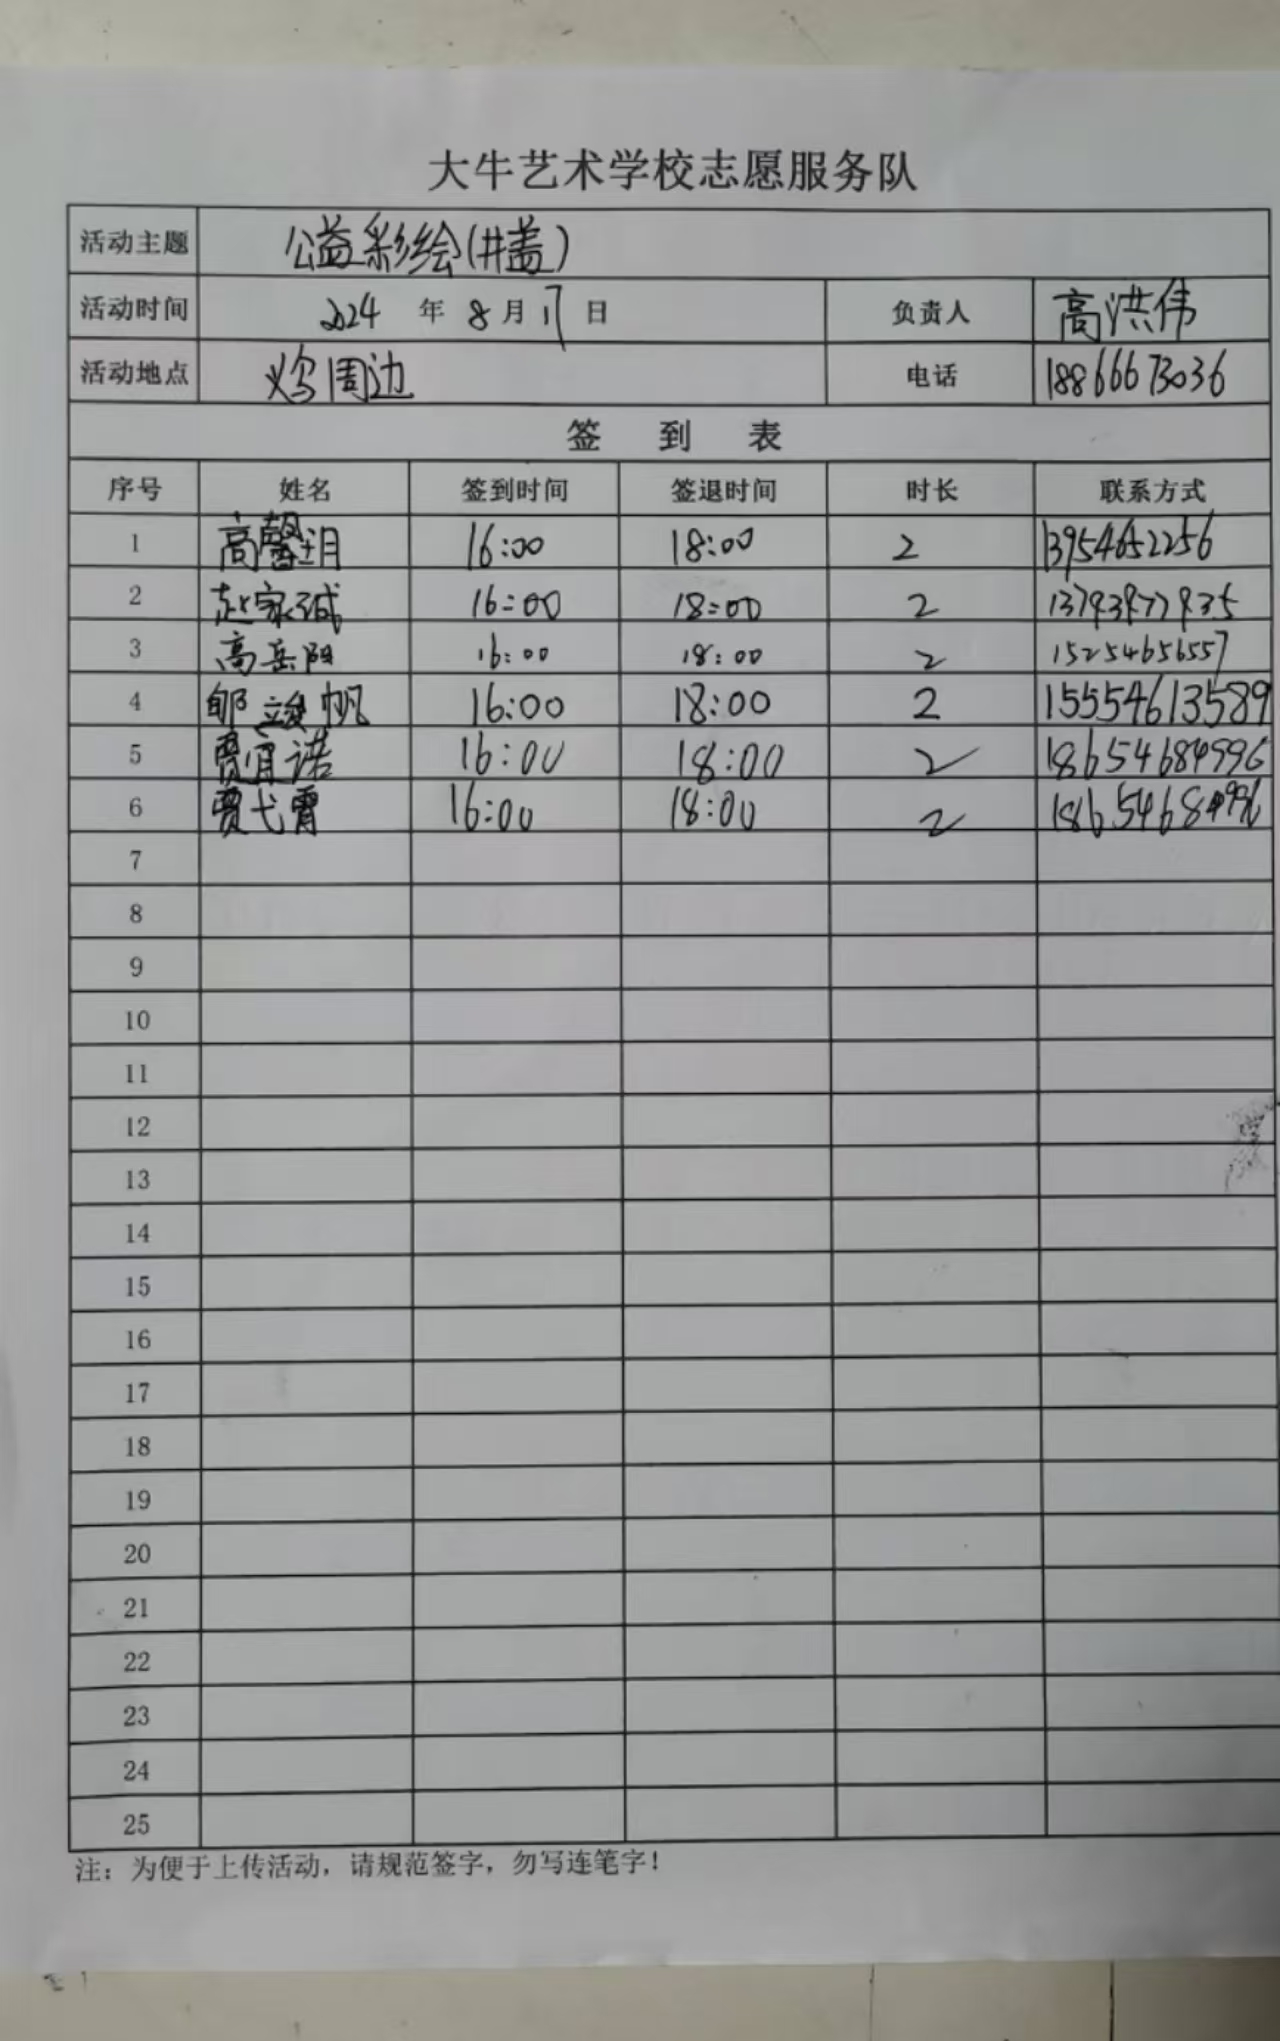 大牛艺术学校志愿服务队
活动主题 公益彩绘(井盖)
活动时间 2024 年 8 月 17 日 负责人 高洪伟
活动地点 义乌周边 电话 18866673036
签 到 表
序号 姓名 签到时间 签退时间 时长 联系方式
1 高馨玥 16:00 18:00 2 13954652256
2 赵家诚 16:00 18:00 2
3 高岳阳 16:00 18:00 2 15254656557
4 郇竣帆 16:00 18:00 2 15554613589
5 贾宜诺 16:00 18:00 2 18654684996
6 贾弋霄 16:00 18:00 2 18654684996
7
8
9
10
11
12
13
14
15
16
17
18
19
20
21
22
23
24
25
注：为便于上传活动，请规范签字，勿写连笔字！